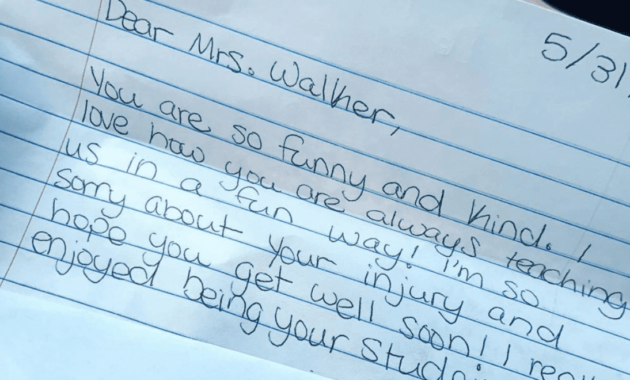 5/31
Dear Mrs. Walker,
You are so funny and kind. I
love how you are always teaching
us in a fun way! I'm so
sorry about your injury and
hope you get well soon! I
enjoyed being your